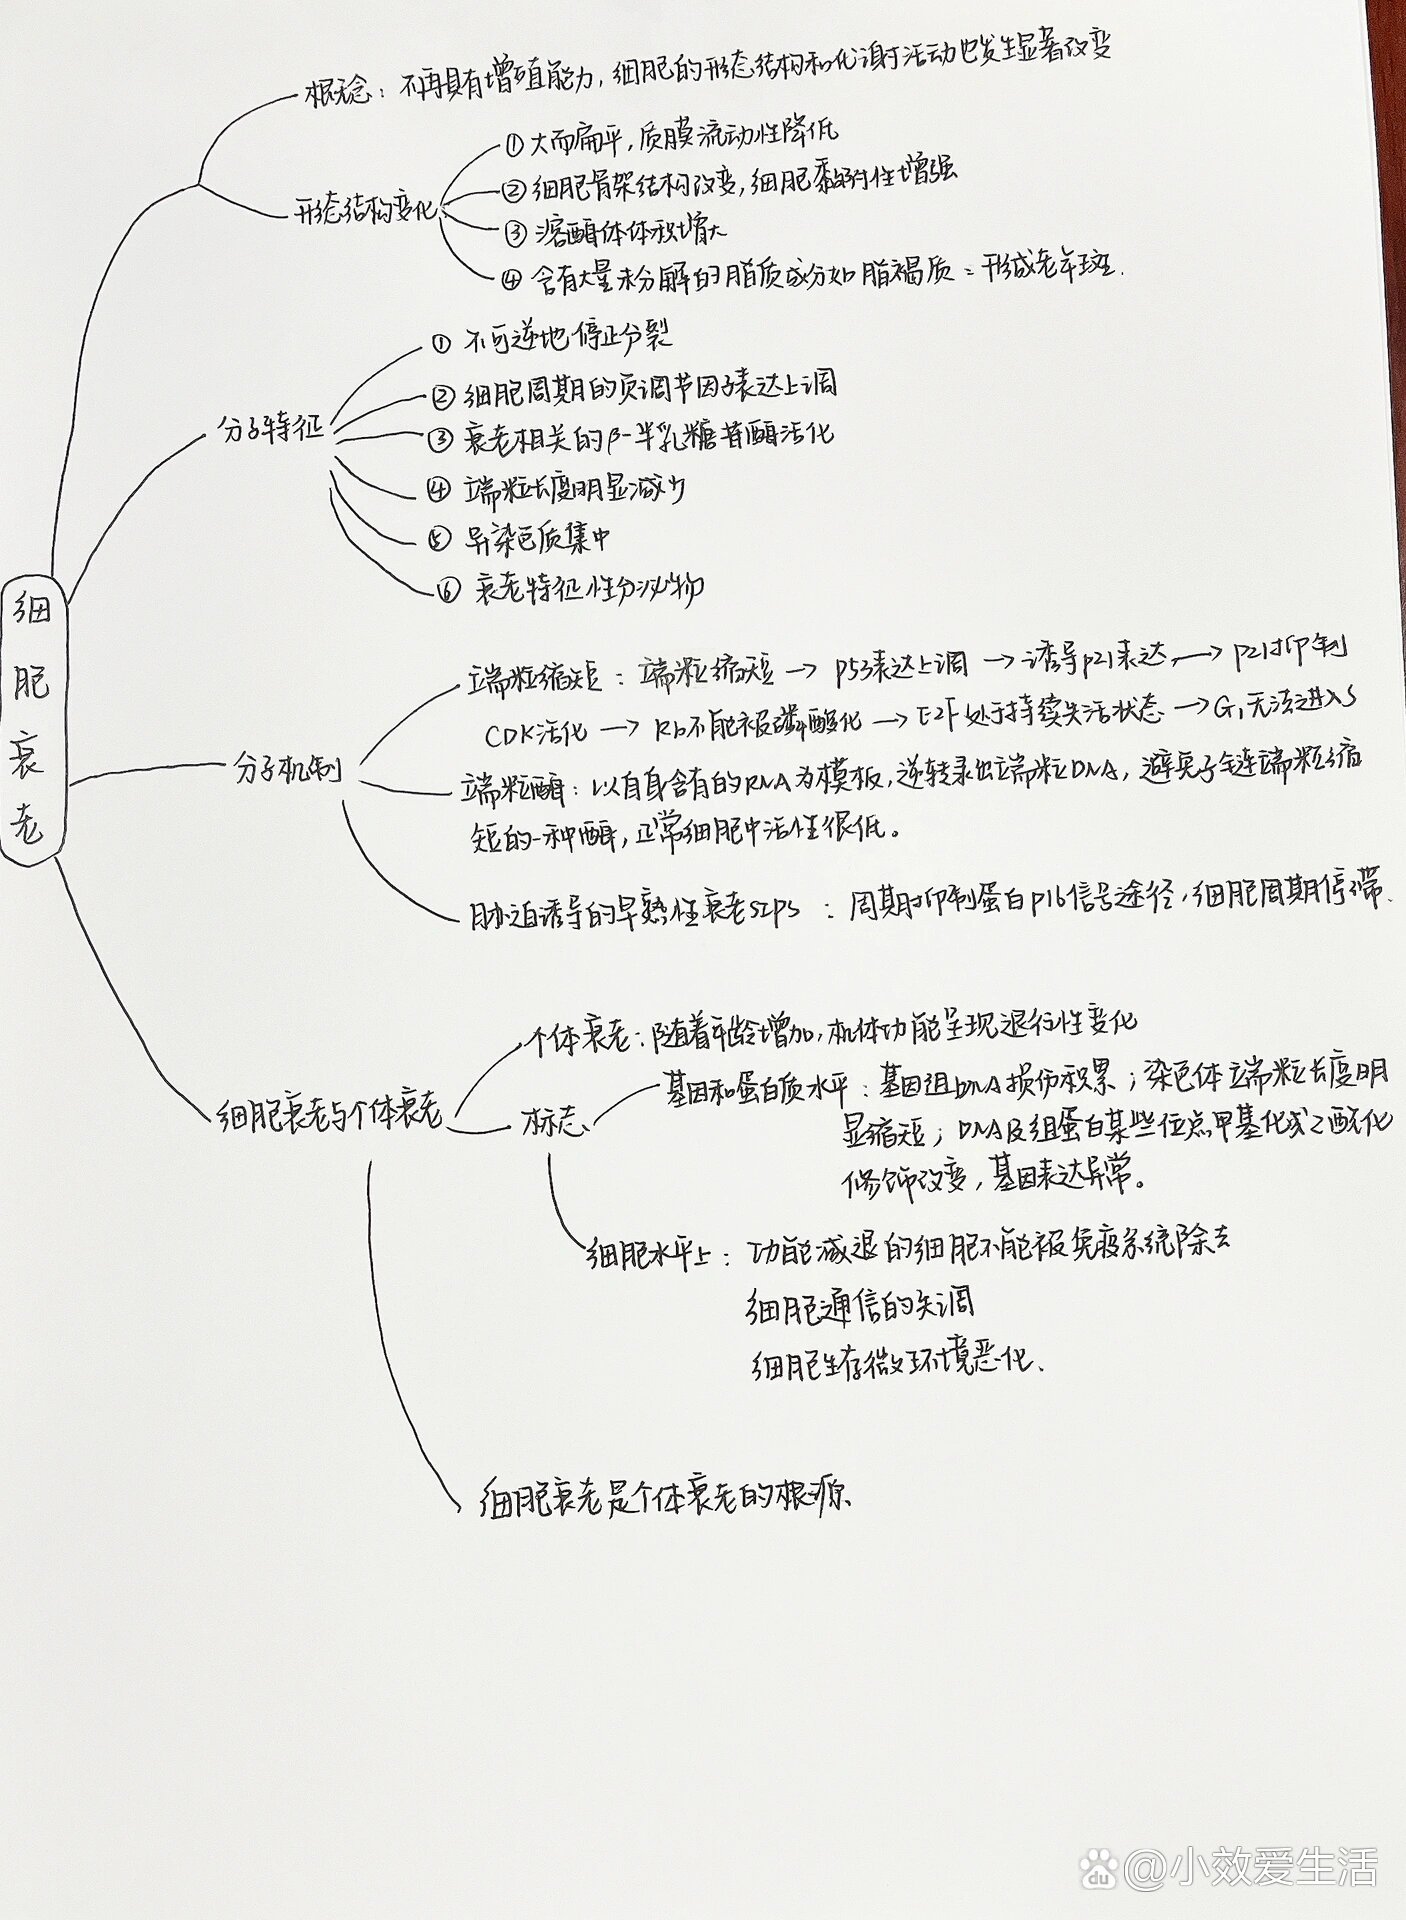 概念：不再具有增殖能力，细胞的形态结构和代谢活动也发生显著改变
形态结构变化
①大而扁平，质膜流动性降低
②细胞骨架结构改变，细胞黏附性增强
③溶酶体体积增大
④含有大量未分解的脂质成分如脂褐质＝形成老年斑.
分子特征
①不可逆地停止分裂
②细胞周期的负调节因子表达上调
③衰老相关的β-半乳糖苷酶活化
④端粒长度明显减少
⑤异染色质集中
⑥衰老特征性分泌物
细胞衰老
分子机制
端粒缩短：端粒缩短→P53表达上调→诱导p21表达，→P21抑制
CDK活化→Rb不能被磷酸化→E2F处于持续失活状态→G1无法进入S
端粒酶：以自身含有的RNA为模板，逆转录出端粒DNA，避免子链端粒缩
短的一种酶，正常细胞中活性很低。
胁迫诱导的早熟性衰老SIPS：周期抑制蛋白p16信号途径，细胞周期停滞.
细胞衰老与个体衰老
个体衰老：随着年龄增加，机体功能呈现退行性变化
标志
基因和蛋白质水平：基因组DNA损伤积累；染色体端粒长度明
显缩短；DNA及组蛋白某些位点甲基化或乙酰化
修饰改变，基因表达异常。
细胞水平上：功能减退的细胞不能被免疫系统除去
细胞通信的失调
细胞生存微环境恶化、
细胞衰老是个体衰老的根源、
du @小效爱生活